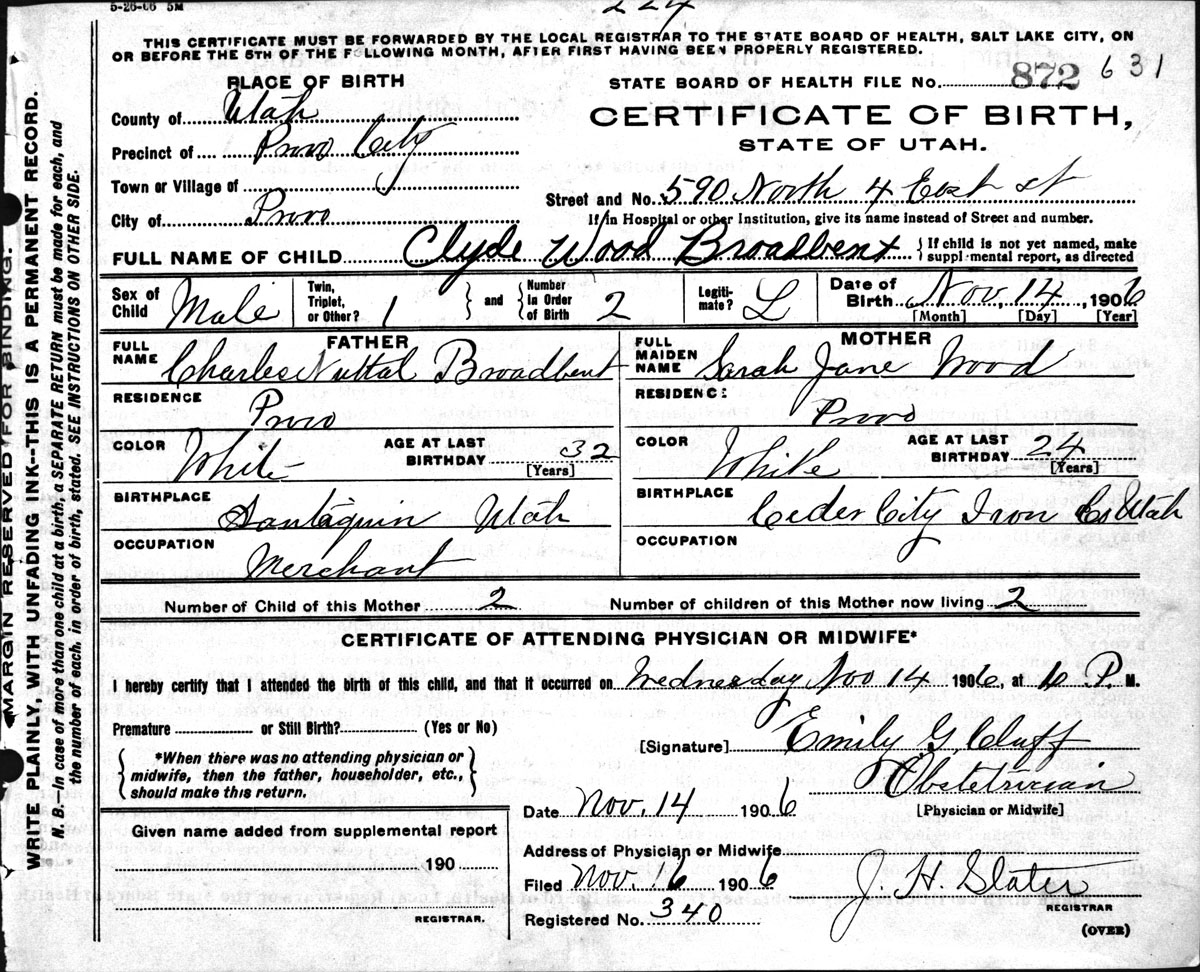 5-26-06 5M
224
THIS CERTIFICATE MUST BE FORWARDED BY THE LOCAL REGISTRAR TO THE STATE BOARD OF HEALTH, SALT LAKE CITY, ON
OR BEFORE THE 5TH OF THE FOLLOWING MONTH, AFTER FIRST HAVING BEEN PROPERLY REGISTERED.
PLACE OF BIRTH
STATE BOARD OF HEALTH FILE No. 872 631
County of Utah
CERTIFICATE OF BIRTH,
STATE OF UTAH.
Precinct of Provo City
Town or Village of
Street and No. 590 North 4 East st
City of Provo
If in Hospital or other Institution, give its name instead of Street and number.
FULL NAME OF CHILD Clyde Wood Broadbent { If child is not yet named, make
supplemental report, as directed
Sex of Child Male Twin, Triplet, or Other? 1 } and { Number in Order of Birth 2 Legitimate? L Date of Birth Nov, 14, 1906
[Month] [Day] [Year]
FATHER
FULL NAME Charles Nuttal Broadbent
RESIDENCE Provo
COLOR White AGE AT LAST BIRTHDAY 32
[Years]
BIRTHPLACE Santaquin Utah
OCCUPATION Merchant
MOTHER
FULL MAIDEN NAME Sarah Jane Wood
RESIDENCE Provo
COLOR White AGE AT LAST BIRTHDAY 24
[Years]
BIRTHPLACE Ceder City Iron Co Utah
OCCUPATION
Number of Child of this Mother 2 Number of children of this Mother now living 2
CERTIFICATE OF ATTENDING PHYSICIAN OR MIDWIFE*
I hereby certify that I attended the birth of this child, and that it occurred on Wednesday Nov 14 1906, at 6 P. M.
Premature or Still Birth? (Yes or No)
{ *When there was no attending physician or
midwife, then the father, householder, etc.,
should make this return. }
[Signature] Emily G, Cluff
Obstetrician
[Physician or Midwife]
Date Nov, 14 1906
Given name added from supplemental report
190
REGISTRAR.
Address of Physician or Midwife
Filed Nov. 16 1906
J. H. Slater
REGISTRAR
Registered No. 340
(OVER)
MARGIN RESERVED FOR BINDING.
WRITE PLAINLY, WITH UNFADING INK--THIS IS A PERMANENT RECORD.
N. B.—In case of more than one child at a birth, a SEPARATE RETURN must be made for each, and
the number of each, in order of birth, stated. SEE INSTRUCTIONS ON OTHER SIDE.